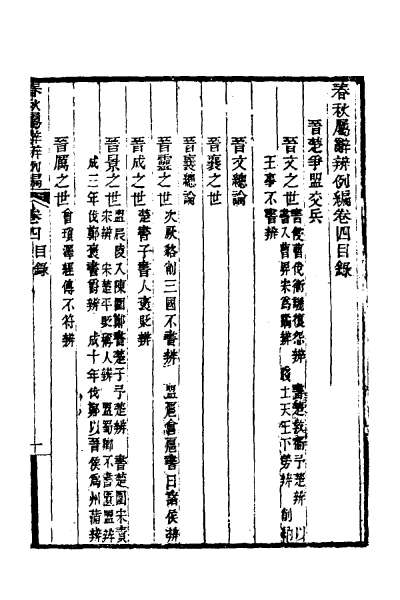 春秋屬辭辨例編卷四目錄
晉楚爭盟交兵
晉文之世
書侵曹伐衛譏復怨辨　書楚救衛予楚辨　以
書入曹畀宋爲譎辨　踐土天王下勞辨　削
王事不書辨
晉文總論
晉襄之世
晉襄總論
晉靈之世
次厥貉削三國不書辨　盟扈會扈書曰諸侯辨
晉成之世
楚書子書人褒貶辨
晉景之世
盟辰陵入陳圍鄭書楚子予楚辨　書楚圍宋責
宋辨　宋楚平貶稱人辨　盟蜀卿不書匱盟辨
成三年伐鄭褒書爵辨　成十年伐鄭以晉侯爲州蒲辨
晉厲之世
會瑣澤經傳不符辨
春秋屬辭辨例編　卷四目錄　一